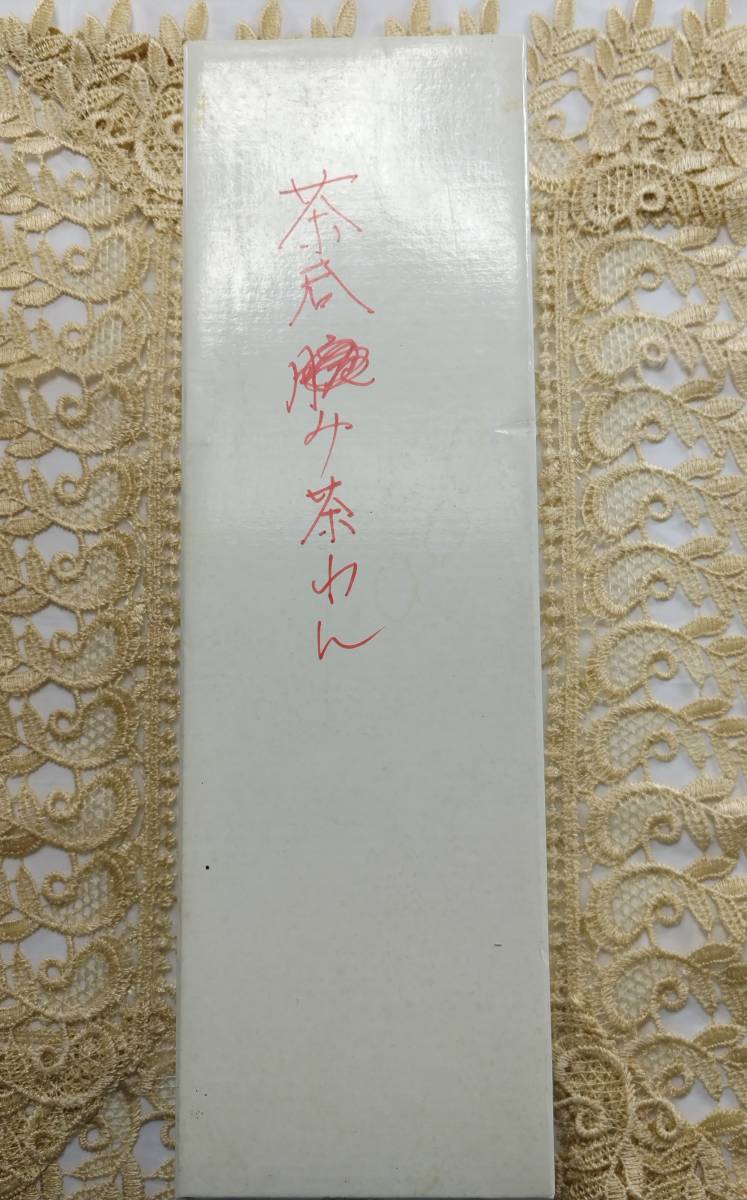 茶呑み茶わん